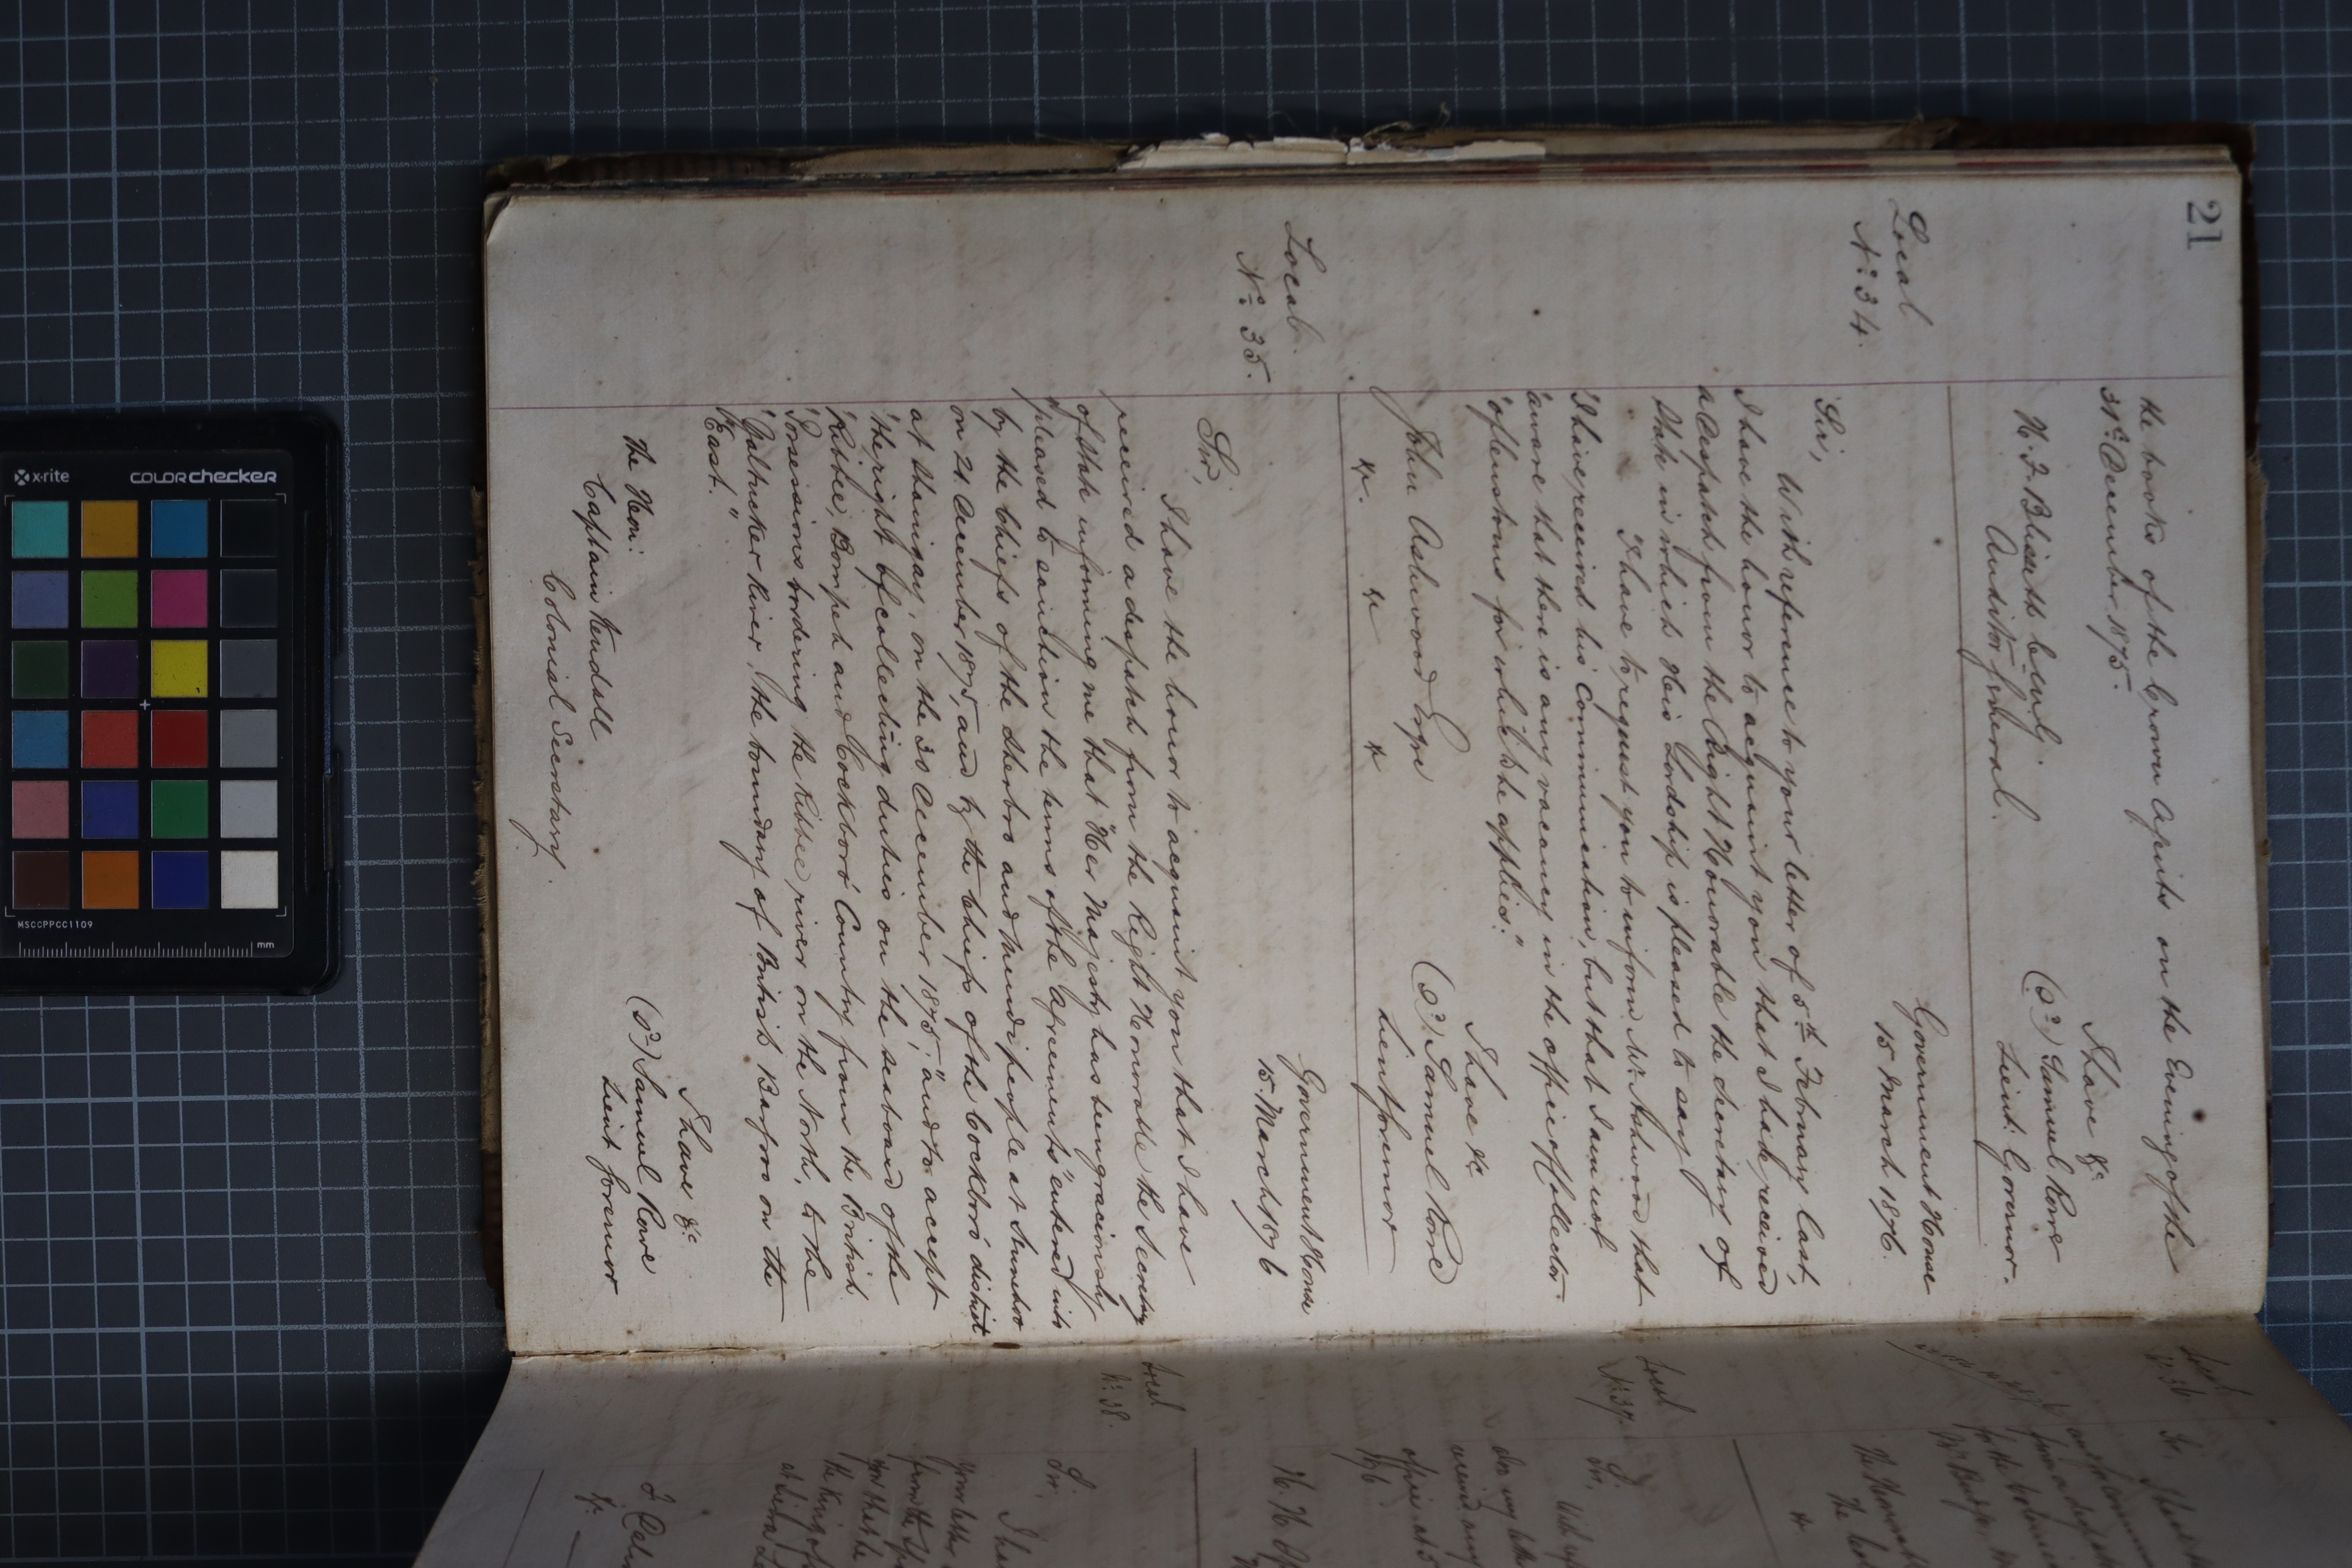 21
the books of the Crown Agents on the Evening of the
31st December 1875.
I have &c
(sd) Samuel Rowe
Lieut: Governor.
H. F. Blissett Esq
Auditor General.
Local
No 34.
Government House
15 March 1876.
Sir,
With reference to your letter of 5th February last,
I have the honor to acquaint you that I have received
a Despatch from the Right Honorable the Secretary of
State in which His Lordship is pleased to say
"I have to request you to inform Mr Ashwood that
"I have received his communication, but that I am not
"aware that there is any vacancy in the office of Collector
"of Customs for which he applies."
I have &c
(sd) Samuel Rowe
Lieut Governor
John Ashwood Esqre
&c. &c &c
Local
No 35.
Government House
15. March 1876
Sir,
I have the honor to acquaint you that I have
received a despatch from the Right Honorable the Secretary
of State informing me that "Her Majesty has been graciously
"pleased to sanction the terms of the Agreements" entered into
by the Chiefs of the Sherbro and Mendi people at
on 24 December 1875, and by the Chiefs of the Cockboro district
at Shaingay, on the 30 December 1875; "and to accept
"the right of collecting duties on the seaboard of the
"Ribbee, Bompeh and Cockboro' Country from the British
"Possessions bordering the Ribbee river on the North, to the
"Galtucker River, the boundary of British Bagroo on the
"East."
I have &c
(sd) Samuel Rowe
Lieut Governor
The Hon:
Captain Kendall
Colonial Secretary.
Local
No 36
Sir,
Local
No 37.
Sir,
Local
No 38.
Sir,